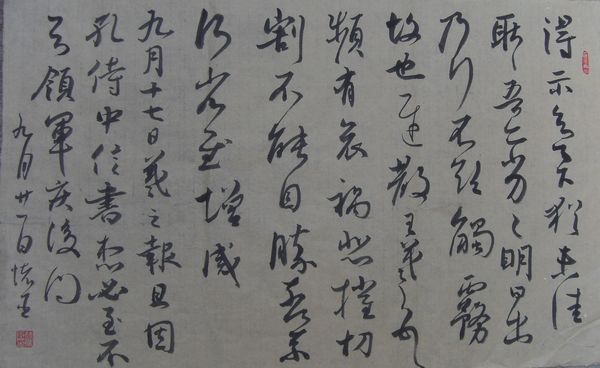 得示知足下猶未佳
耿々吾亦劣々明日出
乃行不欲觸霧
故也遲散王羲之頓首
頻有哀禍悲摧切
割不能自勝奈何奈何
省慰增感
九月十七日羲之報且因
孔侍中信書想必至不
知領軍疾後問
九月廿一日